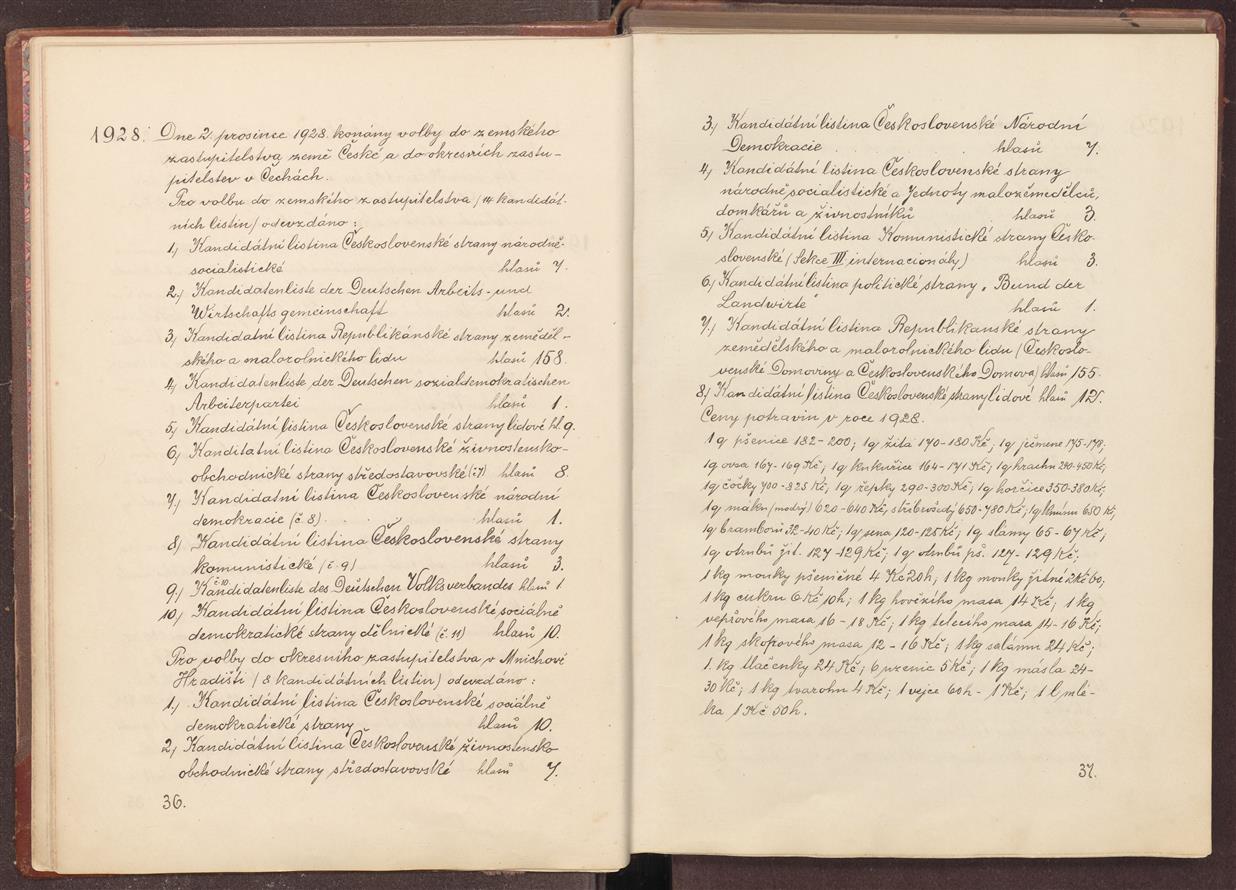 1928. Dne 2. prosince 1928. konány volby do zemského
zastupitelstva země České a do okresních zastu-
pitelstev v Čechách.
Pro volbu do zemského zastupitelstva /14 kandidát-
ních listin/ odevzdáno:
1,) Kandidátní listina Československé strany národně-
socialistické hlasů 7.
2.) Kandidatenliste der Deutschen Arbeits- und
Wirtschaftsgemeinschaft hlasů 2.
3,) Kandidatní listina Republikánské strany zeměděl-
ského a malorolnického lidu hlasů 158.
4,) Kandidatenliste der Deutschen sozialdemokratischen
Arbeiterpartei hlasů 1.
5,) Kandidátní listina Československé strany lidové hl. 9.
6,) Kanditatní listina Československé živnostensko-
obchodnické strany středostavovské (č.7) hlasů 8.
7,) Kandidatní listina Československé národní
demokracie (č. 8) . . hlasů 1.
8) Kandidátní listina Československé strany
komunistické (č. 9) hlasů 3.
9,) Kandidatenliste des Deutschen Volksverbandes hlasů 1
č. 10.
10,) Kandidátní listina Československé sociálně
demokratické strany dělnické (č. 11) hlasů 10.
Pro volby do okresního zastupitelstva v Mnichově
Hradišti (8 kandidátních listin) odevzdáno:
1,) Kandidátní listina Československé sociálně
demokratické strany hlasů 10.
2,) Kandidátní listina Československé živnostensko
obchodnické strany středostavovské hlasů 7.
36.
3,) Kandidátní listina Československé Národní
Demokracie . . . hlasů 7.
4,) Kandidátní listina Československé strany
národně socialistické a Jednoty malozemědělců,
domkářů a živnostníků hlasů 3.
5,) Kandidátní listina Komunistické strany Česko-
slovenské (Sekce III. internacionály) hlasů 3.
6,) Kandidátní listina politické strany „Bund der
Landwirte" hlasů 1.
7,) Kandidátní listina Republikanské strany
zemědělského a malorolnického lidu (Českoslo-
venské Domoviny a Československého Domova) hlasů 155.
8,) Kandidátní listina Československé strany lidové hlasů 12.
Ceny potravin v roce 1928.
1q pšenice 182-200; 1q žita 170-180 Kč, 1q ječmene 175-179;
1q ovsa 167-169 Kč; 1q kukuřice 164-171 Kč; 1q hrachu 240-450 Kč,
1q čočky 700-825 Kč, 1q řepky 290-300 Kč; 1q hořčice 350-380 Kč,
1q máku (modrý) 620-640 Kč, stříbrošedý 650-780 Kč; 1q kmínu 680 Kč,
1q bramborů 32-40 Kč; 1q sena 120-128 Kč; 1q slámy 65-67 Kč;
1q otrubů žit. 127-129 Kč; 1q otrubů pš. 127-129 Kč.
1 kg mouky pšeničné 4 Kč 20 h, 1 kg mouky žitné 2 Kč 60,
1 kg cukru 6 Kč 10 h; 1 kg hovězího masa 14 Kč; 1 kg
vepřového masa 16-18 Kč; 1 kg telecího masa 14-16 Kč;
1 kg skopového masa 12-16 Kč; 1 kg salámu 24 Kč;
1. kg tlačenky 24 Kč; 6 uzenic 5 Kč; 1 kg másla 24-
30 Kč; 1 kg tvarohu 4 Kč; 1 vejce 60 h - 1 Kč; 1 l mlé-
ka 1 Kč 50 h.
37.